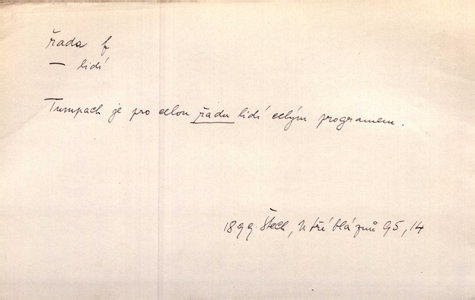 řada f
— lidí
Trumpach je pro celou řadu lidí celým programem.
1899 Štech, U tří bláznů 95, 14